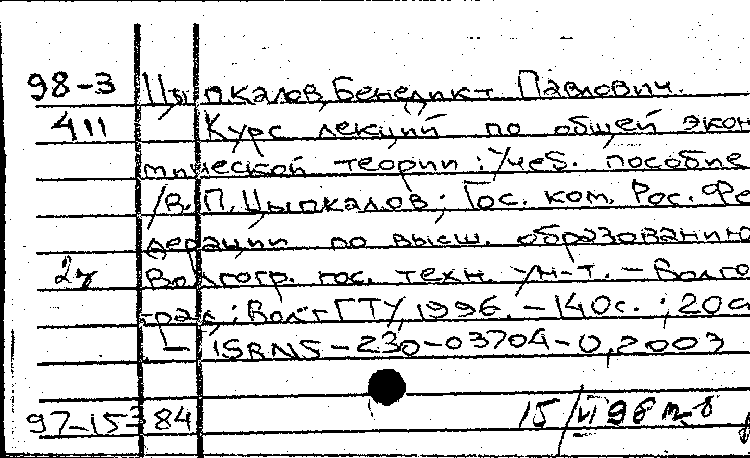 98-3 Цыпкалов, Бенедикт Павлович.
411 Курс лекций по общей экон
мической теории : Учеб. пособие
/В. П. Цыпкалов; Гос. ком. Рос. Фе
дерации по высш. образованию
2ч Волгогр. гос. техн. ун-т. – Волго
град : ВолгГТУ, 1996. – 140с. ; 20с
ISBN5-230-03704-0, 2003
97-15384 15/VI 98